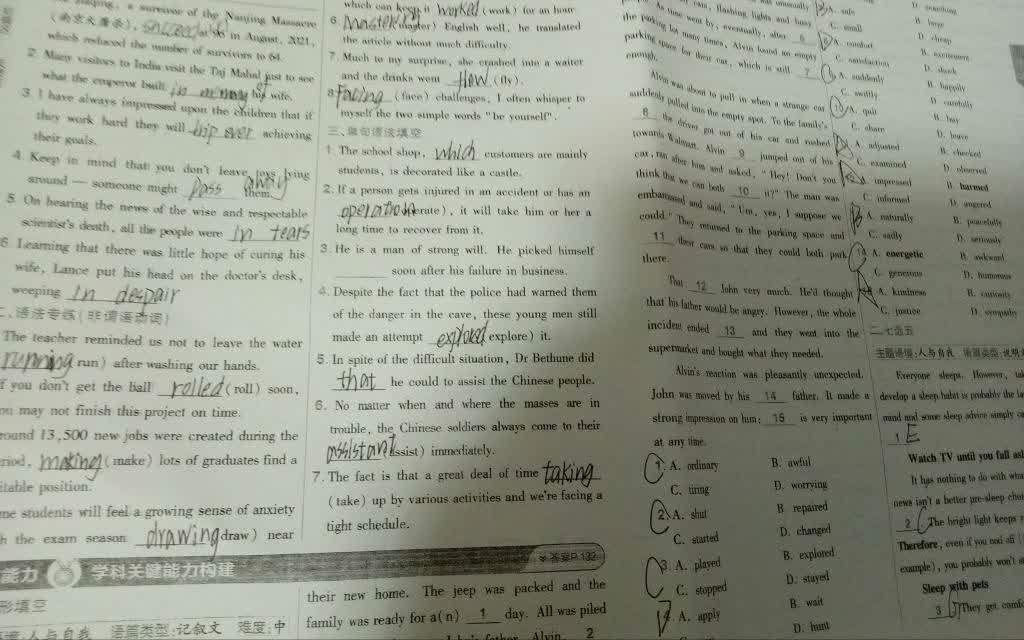 (南京大屠杀), succeed at 96 in August, 2021,
which reduced the number of survivors to 61.
2. Many visitors to India visit the Taj Mahal just to see
what the emperor built in memory of his wife.
3. I have always impressed upon the children that if
they work hard they will achieving
their goals.
4. Keep in mind that you don't leave toys lying
around — someone might pass away them.
5. On hearing the news of the wise and respectable
scientist's death, all the people were in tears
6. Learning that there was little hope of curing his
wife, Lance put his head on the doctor's desk,
weeping in despair
二、语法专练(非谓语动词)
The teacher reminded us not to leave the water
running run) after washing our hands.
f you don't get the ball rolled (roll) soon,
ou may not finish this project on time.
round 13,500 new jobs were created during the
riod, making (make) lots of graduates find a
itable position.
me students will feel a growing sense of anxiety
h the exam season drawing draw) near
能力 学科关键能力构建
答案P.132
形填空
人与自我 语篇类型:记叙文 难度:中
which can keep it worked (work) for an hour
6. Mastering master) English well, he translated
the article without much difficulty.
7. Much to my surprise, she crashed into a waiter
and the drinks went flow (fly).
8. Facing (face) challenges, I often whisper to
myself the two simple words "be yourself".
三、单句语法填空
1. The school shop, which customers are mainly
students, is decorated like a castle.
2. If a person gets injured in an accident or has an
operation operate), it will take him or her a
long time to recover from it.
3. He is a man of strong will. He picked himself
soon after his failure in business.
4. Despite the fact that the police had warned them
of the danger in the cave, these young men still
made an attempt explored explore) it.
5. In spite of the difficult situation, Dr Bethune did
that he could to assist the Chinese people.
6. No matter when and where the masses are in
trouble, the Chinese soldiers always come to their
assistant assist) immediately.
7. The fact is that a great deal of time taking
(take) up by various activities and we're facing a
tight schedule.
their new home. The jeep was packed and the
family was ready for a(n) 1 day. All was piled
father, Alvin, 2
As time went by, eventually, after 6
the parking lot many times, Alvin found an empty
parking space for their car, which is still 7
enough.
Alvin was about to pull in when a strange car
suddenly pulled into the empty spot. To the family's
8 the driver got out of his car and rushed
towards Walmart. Alvin 9 jumped out of his
car, ran after him and asked, "Hey! Don't you
think that we can both 10 it?" The man was
embarrassed and said, "Um, yes, I suppose we
could." They returned to the parking space and
11 their cars so that they could both park
there.
That 12 John very much. He'd thought
that his father would be angry. However, the whole
incident ended 13 and they went into the
supermarket and bought what they needed.
Alvin's reaction was pleasantly unexpected.
John was moved by his 14 father. It made a
strong impression on him; 15 is very important
at any time.
1. A. ordinary B. awful
C. tiring D. worrying
2. A. shut B. repaired
C. started D. changed
3. A. played B. explored
C. stopped D. stayed
4. A. apply B. wait
D. hunt
A. safe B. large
C. small D. cheap
A. comfort B. excitement
C. satisfaction D. shock
A. suddenly B. happily
C. swiftly D. carefully
A. quit B. buy
C. share D. leave
A. adjusted B. checked
C. examined D. observed
A. impressed B. harmed
C. informed D. angered
A. naturally B. peacefully
C. sadly D. seriously
A. energetic B. awkward
C. generous D. humorous
A. kindness B. curiosity
C. justice D. sympathy
二、七选五
主题语境:人与自我
Everyone sleeps. However,
develop a sleep habit is probably the
mind and some sleep advice simply
1 E
Watch TV until you fall
It has nothing to do with
news isn't a better pre-sleep
2 The bright light keeps
Therefore, even if you nod off
example), you probably won't
Sleep with pets
3 They get